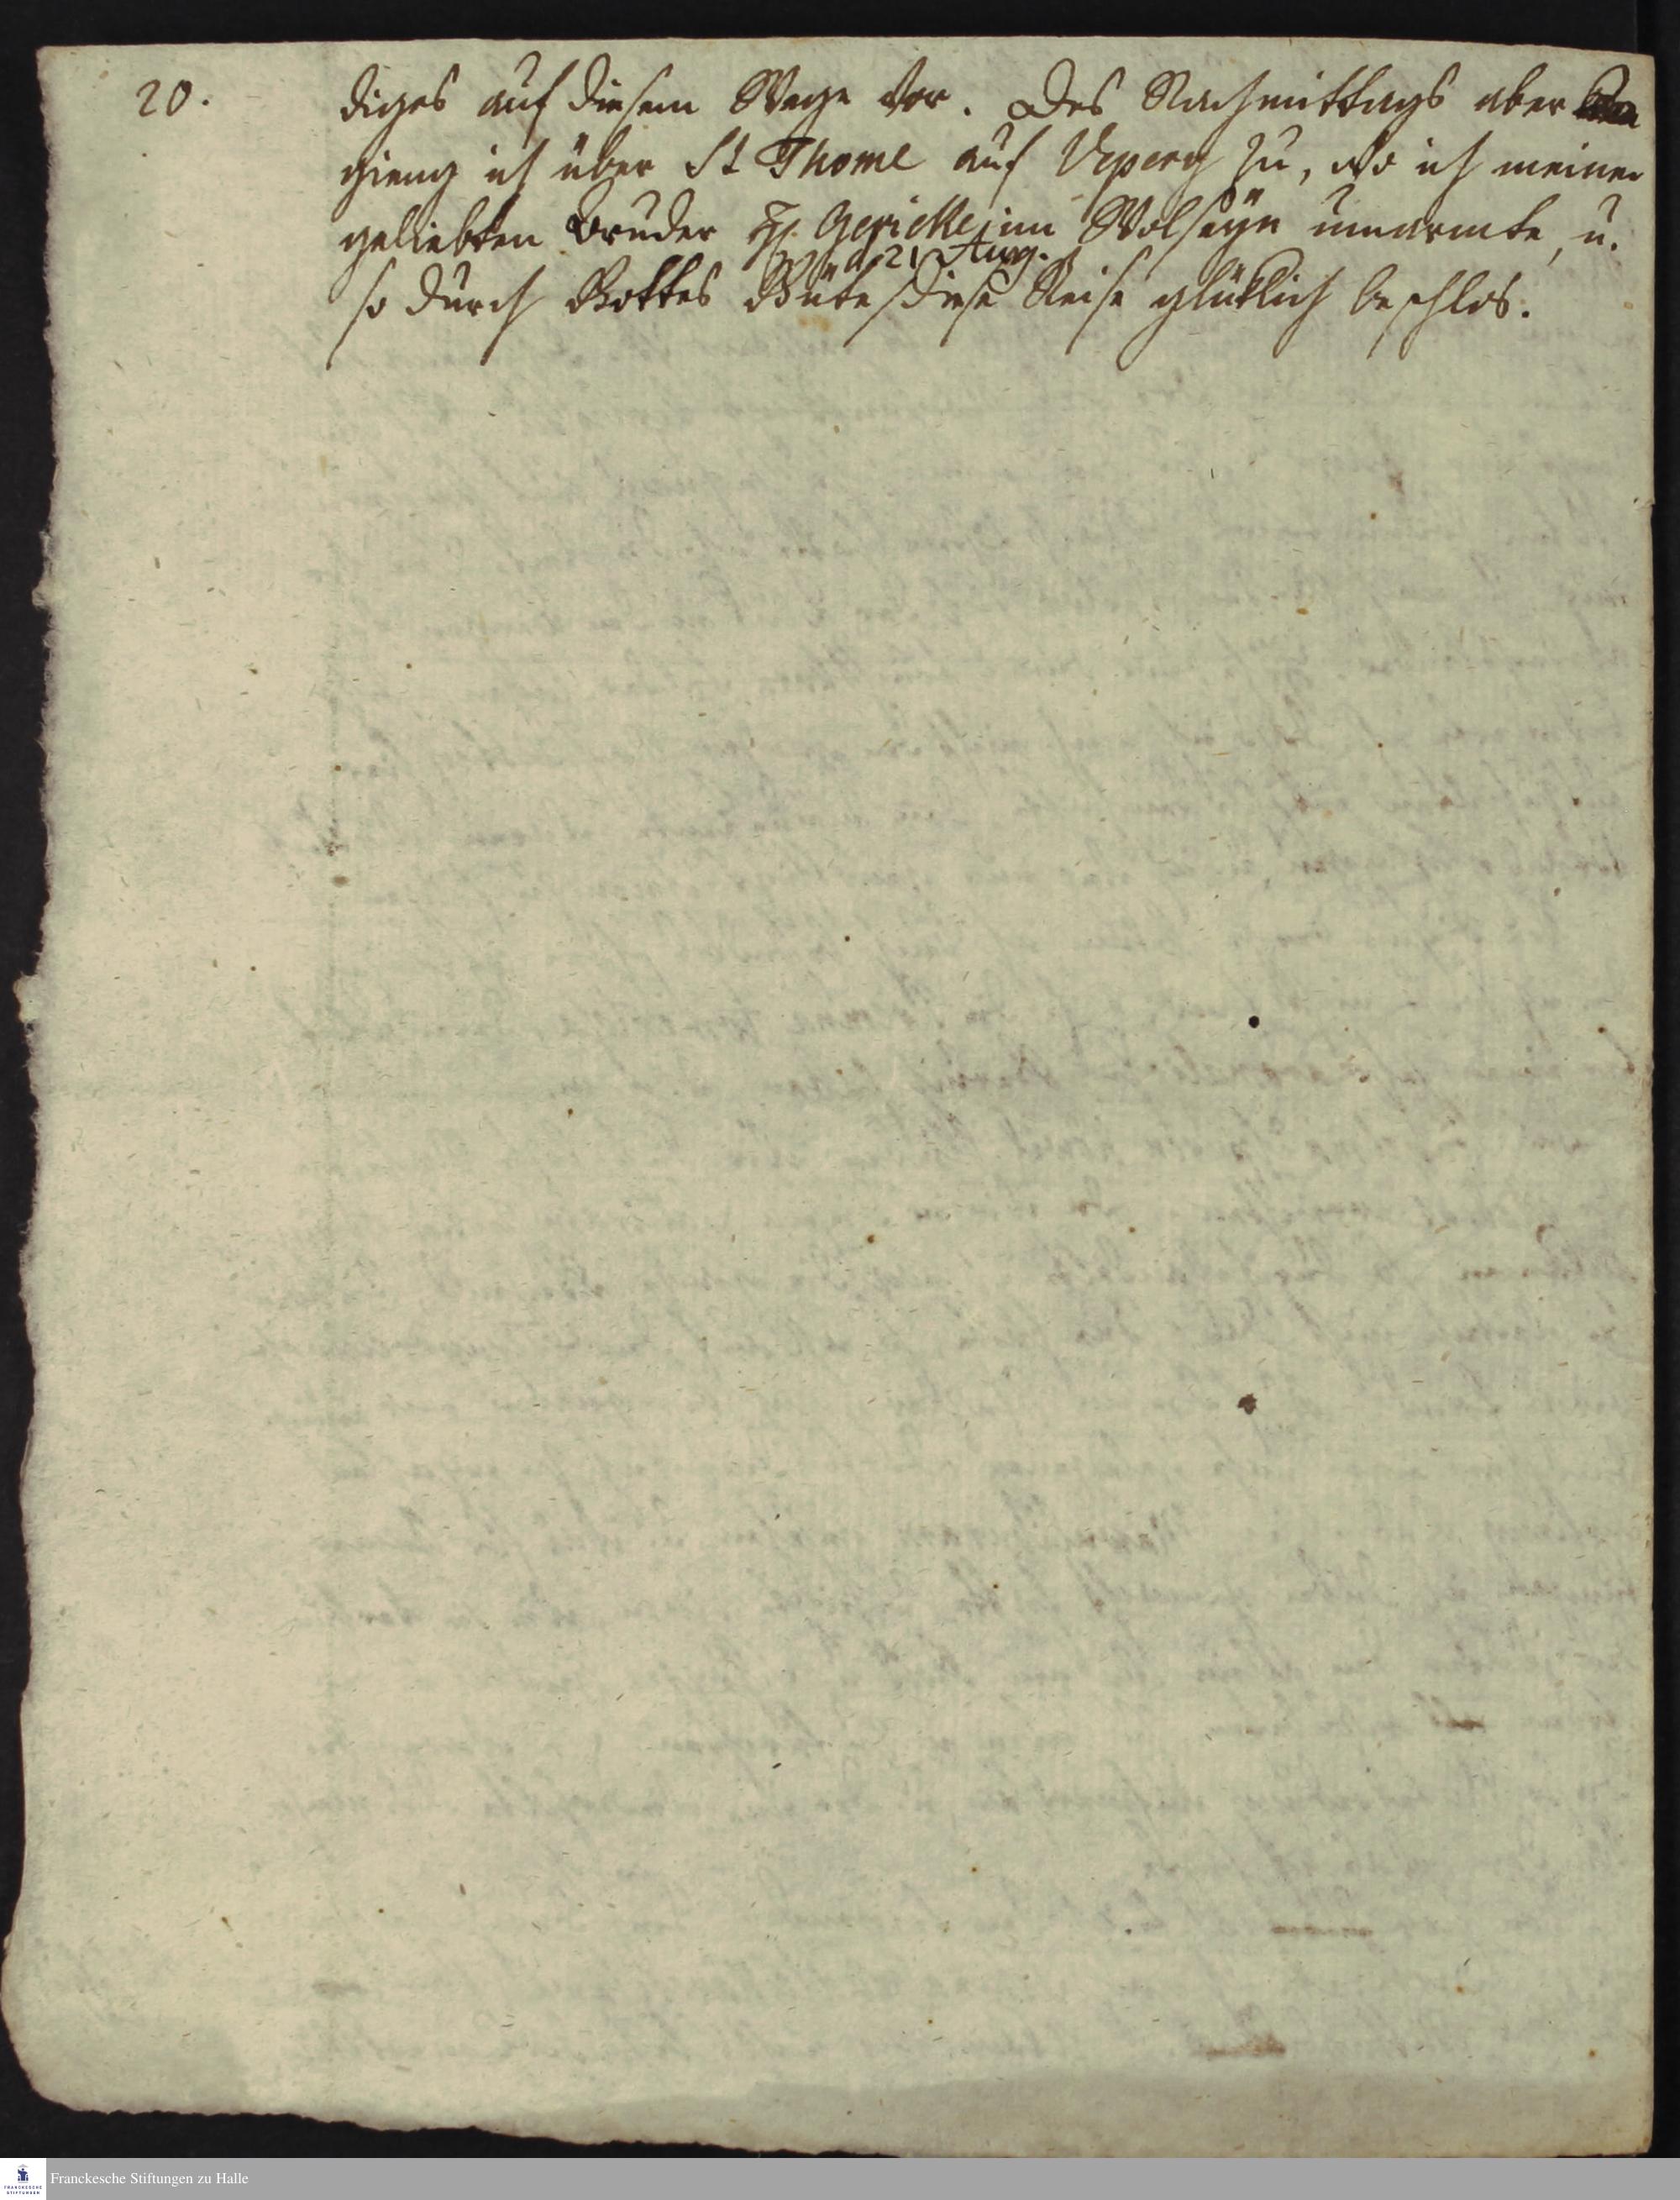 20.
diges auf diesem Wege vor. Des Nachmittags aber
gieng ich über St Thome auf Vepery zu, wo ich meinen
geliebten Bruder H. Gericke im Wolseyn umarmte, u.
d. 21 Aug.
so durch Gottes Güte diese Reise glüklich beschlos.
Franckesche Stiftungen zu Halle
FRANCKESCHE
STIFTUNGEN